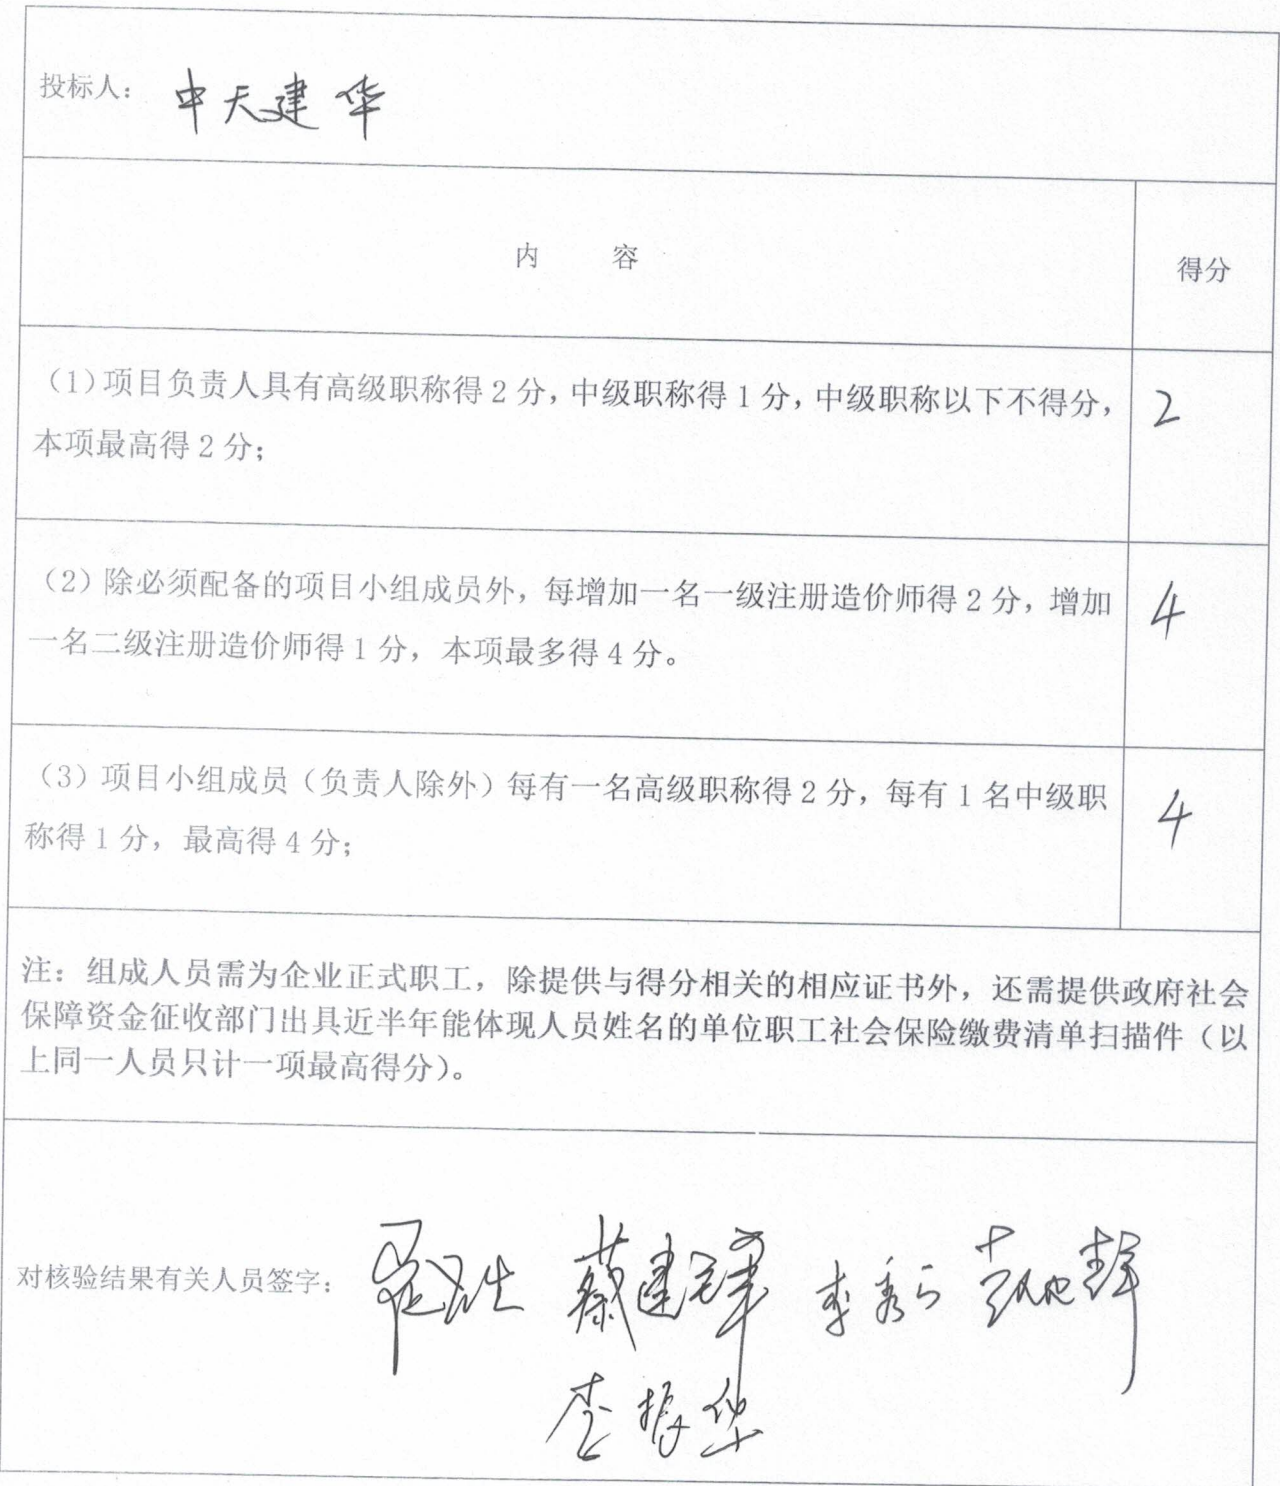 投标人：中天建华
内 容
得分
（1）项目负责人具有高级职称得2分，中级职称得1分，中级职称以下不得分，
本项最高得2分；
2
（2）除必须配备的项目小组成员外，每增加一名一级注册造价师得2分，增加
一名二级注册造价师得1分，本项最多得4分。
4
（3）项目小组成员（负责人除外）每有一名高级职称得2分，每有1名中级职
称得1分，最高得4分；
4
注：组成人员需为企业正式职工，除提供与得分相关的相应证书外，还需提供政府社会
保障资金征收部门出具近半年能体现人员姓名的单位职工社会保险缴费清单扫描件（以
上同一人员只计一项最高得分）。
对核验结果有关人员签字：
李振华